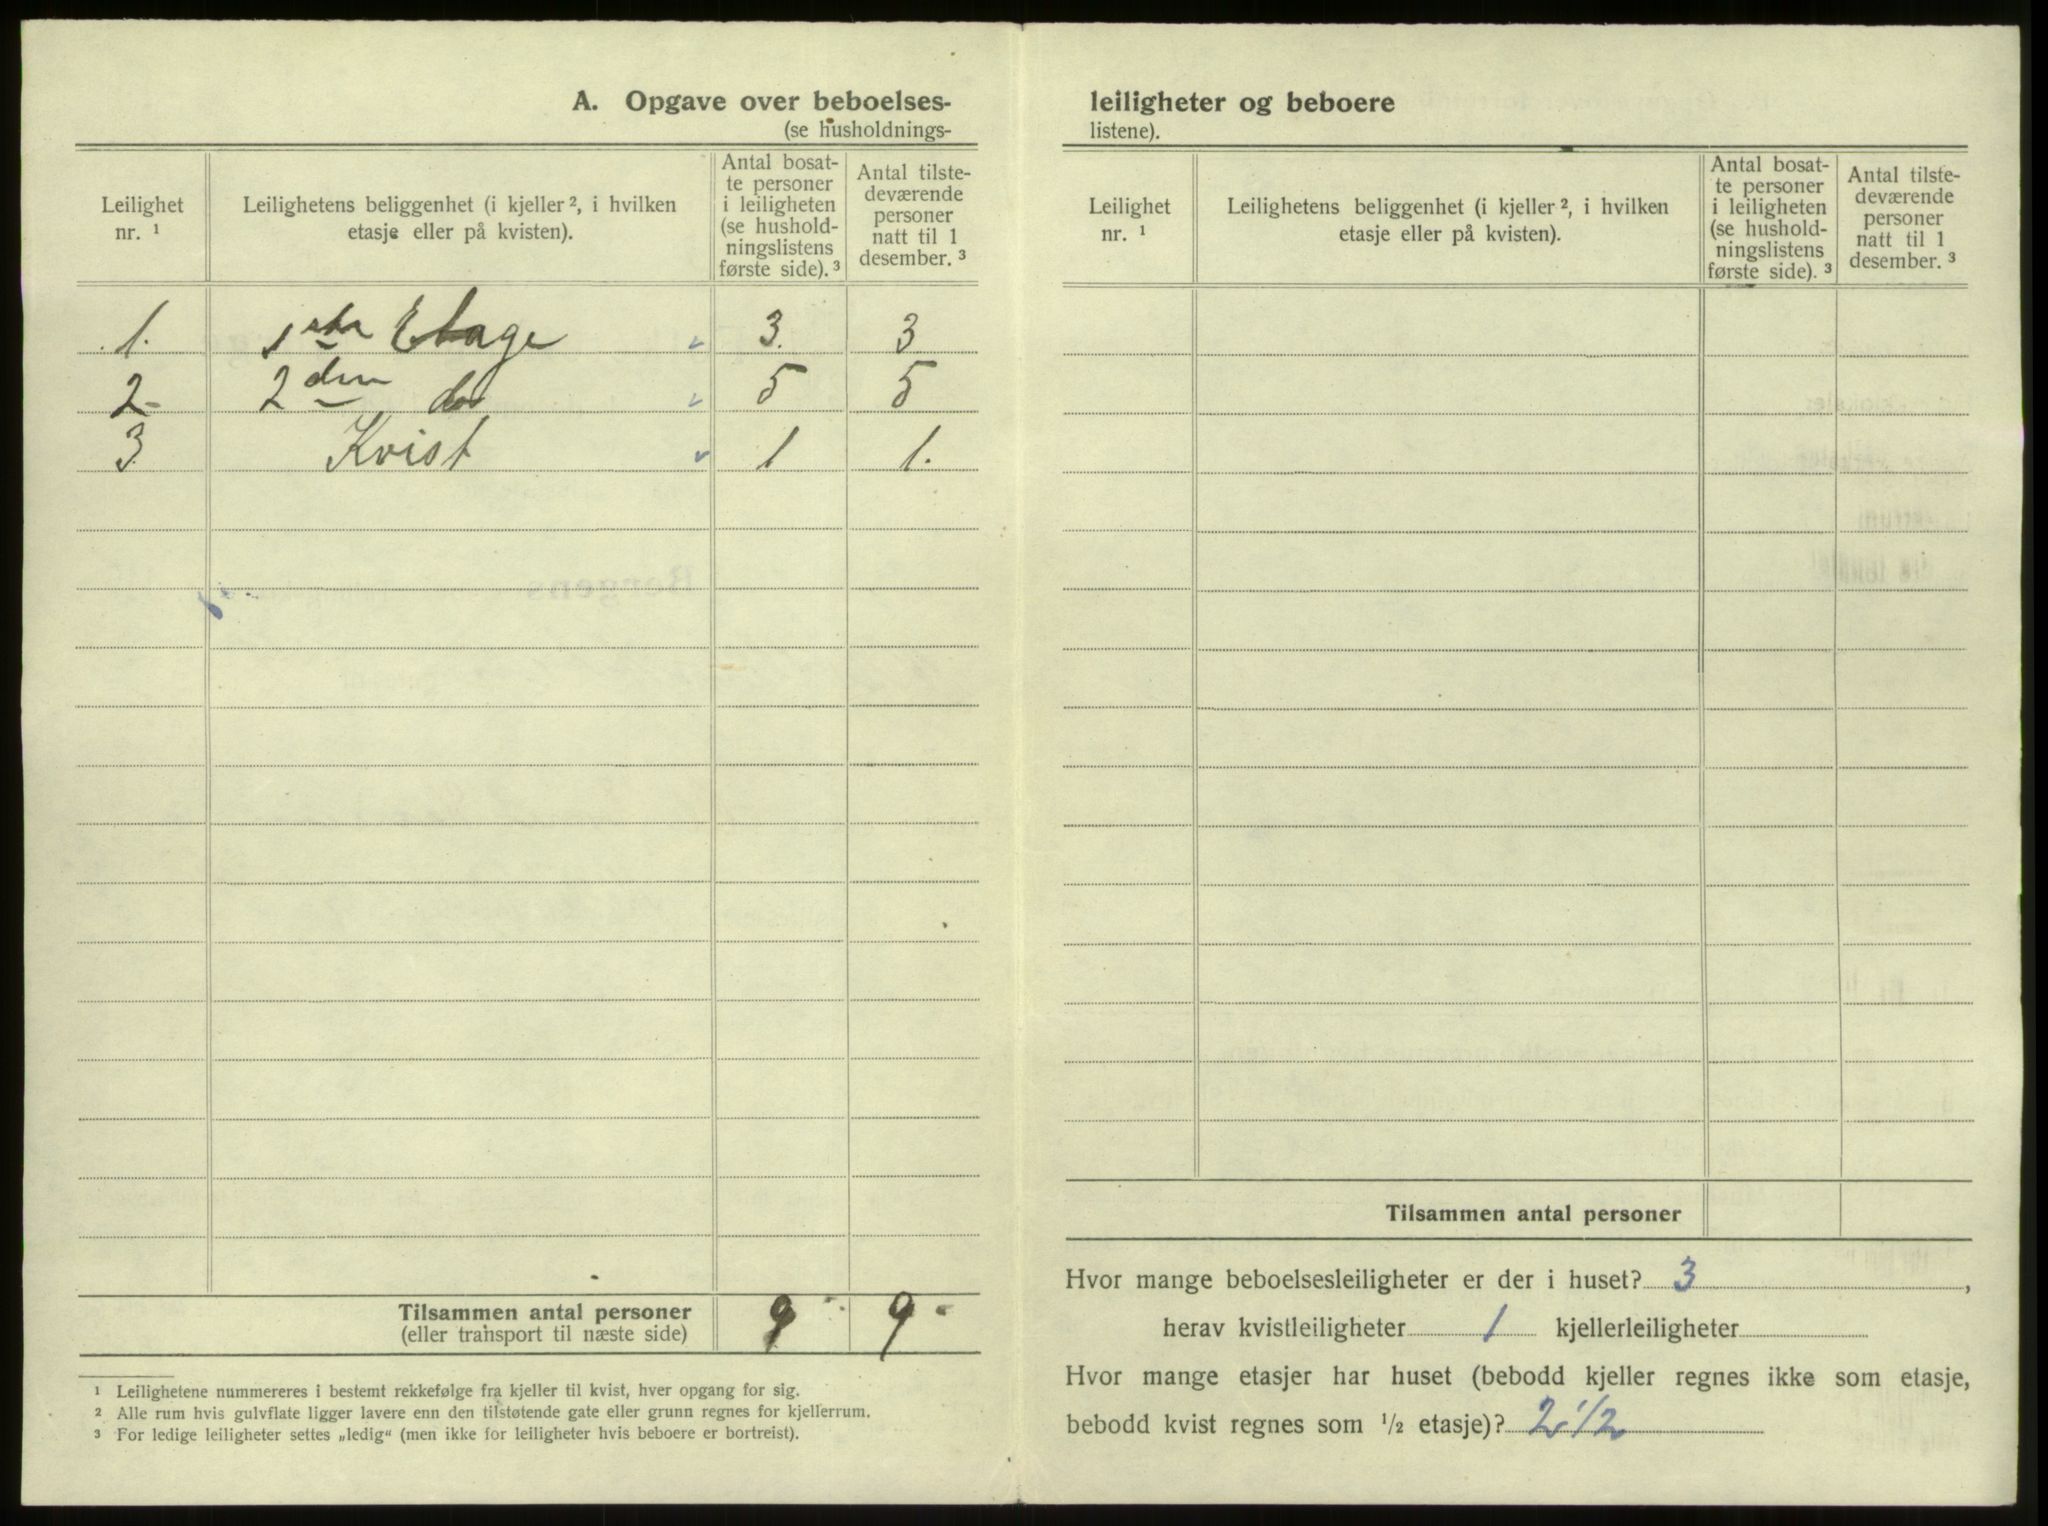 A. Opgave over beboelses-
(se husholdnings-
Leilighet nr. ¹
Leilighetens beliggenhet (i kjeller ², i hvilken etasje eller på kvisten).
Antal bosat-
te personer
i leiligheten
(se hushold-
ningslistens
første side). ³
Antal tilste-
deværende
personer
natt til 1
desember. ³
1. 1ste Etage 3. 3
2- 2den do 5 5
3 Kvist 1 1.
Tilsammen antal personer 9 9-
(eller transport til næste side)
¹ Leilighetene nummereres i bestemt rekkefølge fra kjeller til kvist, hver opgang for sig.
² Alle rum hvis gulvflate ligger lavere enn den tilstøtende gate eller grunn regnes for kjellerrum.
³ For ledige leiligheter settes „ledig“ (men ikke for leiligheter hvis beboere er bortreist).
leiligheter og beboere
listene).
Leilighet nr. ¹
Leilighetens beliggenhet (i kjeller ², i hvilken etasje eller på kvisten).
Antal bosat-
te personer
i leiligheten
(se hushold-
ningslistens
første side). ³
Antal tilste-
deværende
personer
natt til 1
desember. ³
Tilsammen antal personer
Hvor mange beboelsesleiligheter er der i huset? 3,
herav kvistleiligheter 1 kjellerleiligheter
Hvor mange etasjer har huset (bebodd kjeller regnes ikke som etasje,
bebodd kvist regnes som ½ etasje)? 2 1/2